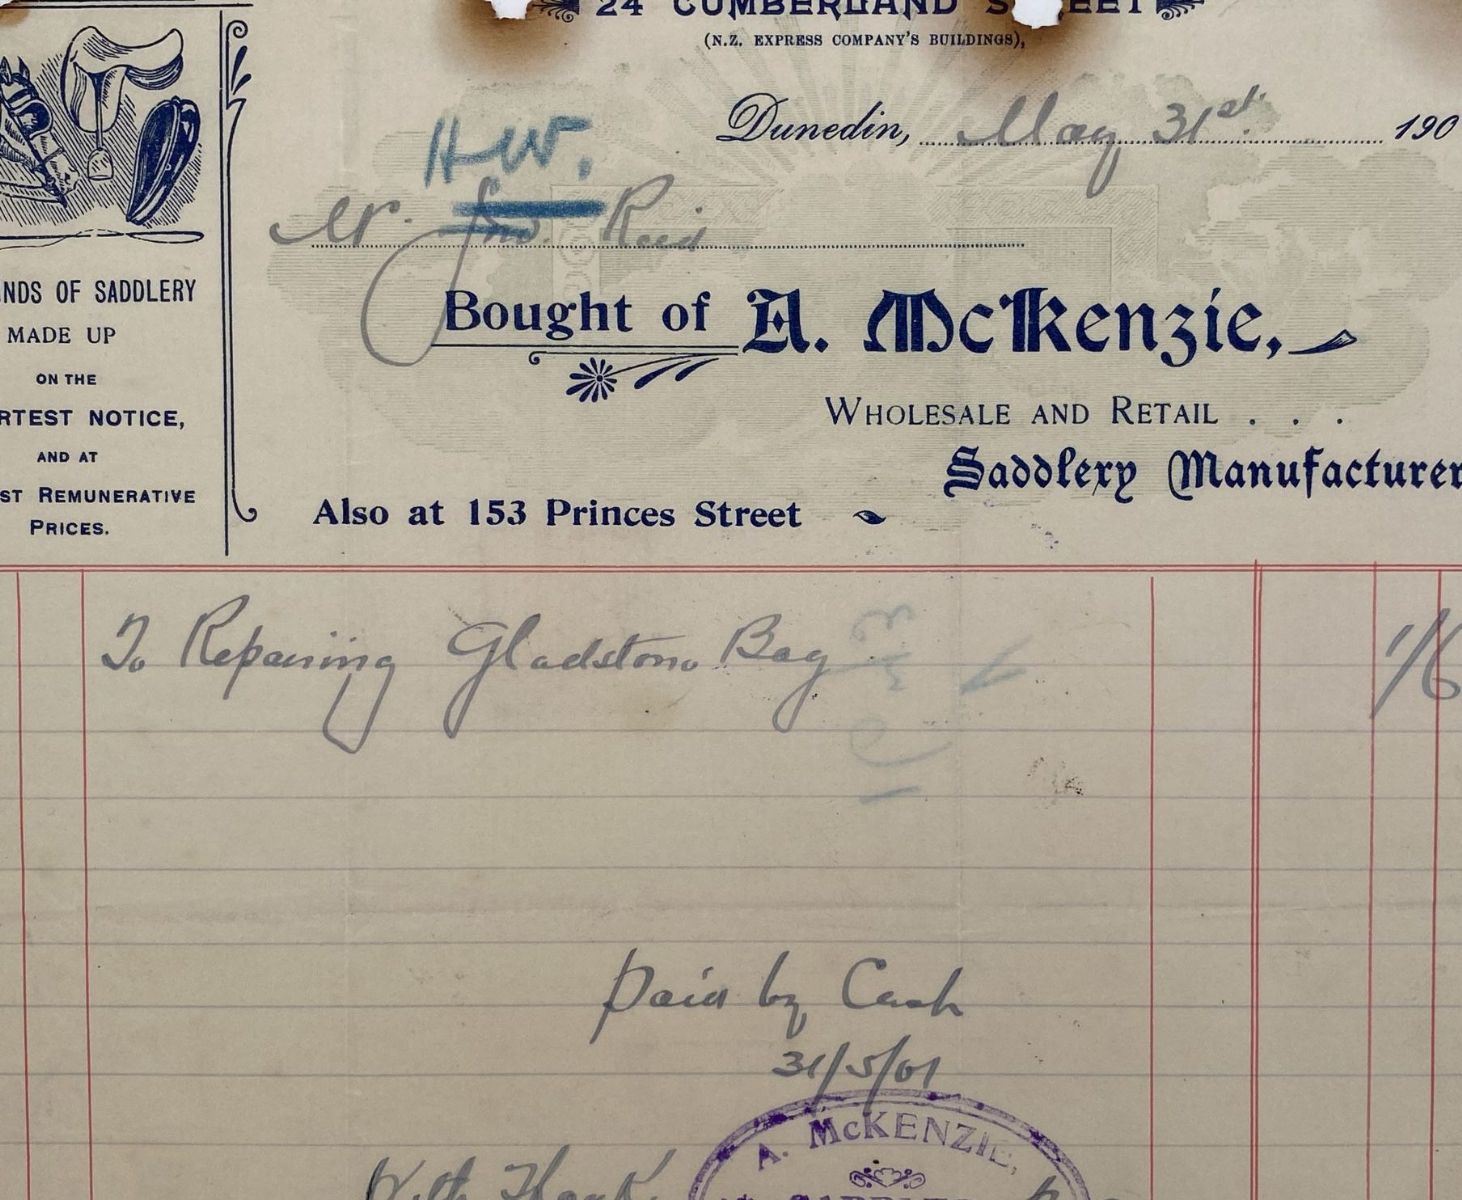 24 CUMBERLAND STREET
(N.Z. EXPRESS COMPANY'S BUILDINGS),
Dunedin, May 31st 190
H.W.
Mr. Jno. Reid
Bought of A. McKenzie,
WHOLESALE AND RETAIL . . .
Saddlery Manufacturer
Also at 153 Princes Street
NDS OF SADDLERY
MADE UP
ON THE
RTEST NOTICE,
AND AT
ST REMUNERATIVE
PRICES.
To Repairing Gladstone Bag 1/6
Paid by Cash
31/5/01
A. McKENZIE,
With Thanks